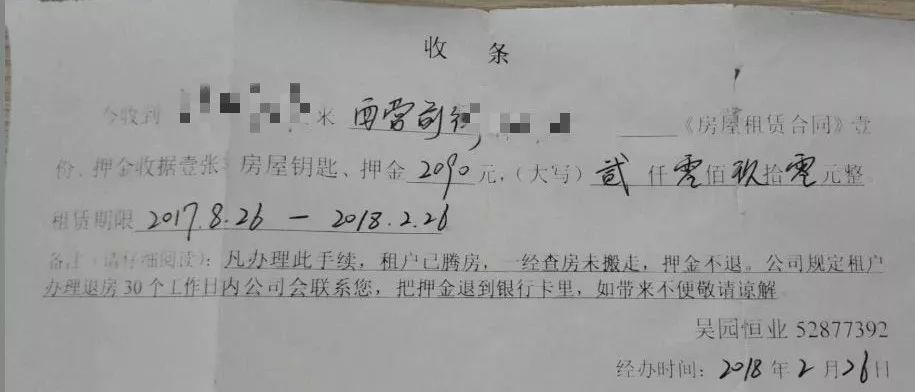 收 条
今收到 米 西营前街, 《房屋租赁合同》壹
份、押金收据壹张 房屋钥匙、押金 2090 元,(大写) 贰 仟 零 佰 玖 拾 零 元整
租赁期限 2017.8.26 — 2018.2.26
备注(请仔细阅读):凡办理此手续,租户已腾房,一经查房未搬走,押金不退。公司规定租户
办理退房30个工作日内公司会联系您,把押金退到银行卡里,如带来不便敬请谅解
吴园恒业 52877392
经办时间:2018 年 2 月 26 日